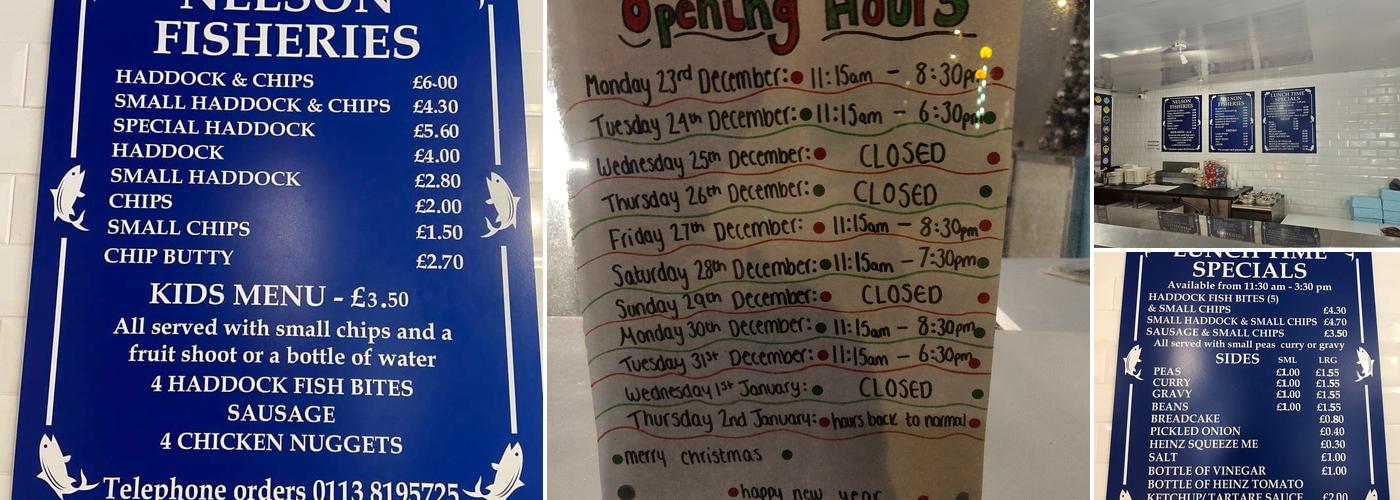 NELSON
FISHERIES
HADDOCK & CHIPS £6.00
SMALL HADDOCK & CHIPS £4.30
SPECIAL HADDOCK £5.60
HADDOCK £4.00
SMALL HADDOCK £2.80
CHIPS £2.00
SMALL CHIPS £1.50
CHIP BUTTY £2.70
KIDS MENU - £3.50
All served with small chips and a
fruit shoot or a bottle of water
4 HADDOCK FISH BITES
SAUSAGE
4 CHICKEN NUGGETS
Telephone orders 0113 8195725
Opening Hours
Monday 23rd December: 11:15am - 8:30pm
Tuesday 24th December: 11:15am - 6:30pm
Wednesday 25th December: CLOSED
Thursday 26th December: CLOSED
Friday 27th December: 11:15am - 8:30pm
Saturday 28th December: 11:15am - 7:30pm
Sunday 29th December: CLOSED
Monday 30th December: 11:15am - 8:30pm
Tuesday 31st December: 11:15am - 6:30pm
Wednesday 1st January: CLOSED
Thursday 2nd January: hours back to normal
merry christmas
happy new year
NELSON
FISHERIES
NELSON
FISHERIES
LUNCH TIME
SPECIALS
LUNCH TIME
SPECIALS
Available from 11:30 am - 3:30 pm
HADDOCK FISH BITES (5)
& SMALL CHIPS £4.30
SMALL HADDOCK & SMALL CHIPS £4.70
SAUSAGE & SMALL CHIPS £3.50
All served with small peas curry or gravy
SIDES SML LRG
PEAS £1.00 £1.55
CURRY £1.00 £1.55
GRAVY £1.00 £1.55
BEANS £1.00 £1.55
BREADCAKE £0.80
PICKLED ONION £0.40
HEINZ SQUEEZE ME £0.30
SALT £1.00
BOTTLE OF VINEGAR £1.00
BOTTLE OF HEINZ TOMATO
KETCHUP/TARTARE SAUCE £2.00